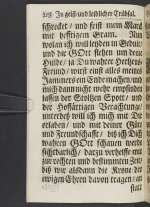 218 In geist= und leiblicher Trübsal.
schrecket / und seist mein Marck
mit hefftigen Gram. Nun
wolan ich will leyden in Gedult /
und die GOtt flehen und deine
Hulde / ja Du wahrer Hertzens=
Freund / wirst einst alles meines
Jammers ein Ende machen / und
mich dann nicht mehr empfinden
lassen der Stoltzen Spott / und
der Hoffärtigen Verachtung /
unterdeß will ich mich mit Dir
erlaben / und mit deiner Güt
und Freundschaffe / biß ich Dich
wahren GOtt schauen werde
sichtbarlich / darzu verhelffe mir
zur rechten und bestimmten Zeit /
daß wir alsdann die Krone der
ewigen Ehren davon tragen / an
statt